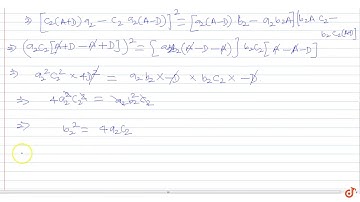 ⇒ [c₂(A+D) a₂ - c₂ a₂(A-D)]² = [a₂(A-D) b₂ - a₂b₂A] [b₂A c₂ - b₂c₂(A+D)]
⇒ (a₂c₂[A+D - A+D])² = [a₂b₂(A-D-A)] b₂c₂[A-A-D]
⇒ a₂²c₂² × 4D² = a₂b₂ × -D × b₂c₂ × -D
⇒ 4a₂²c₂² = a₂b₂²c₂
⇒ b₂² = 4a₂c₂